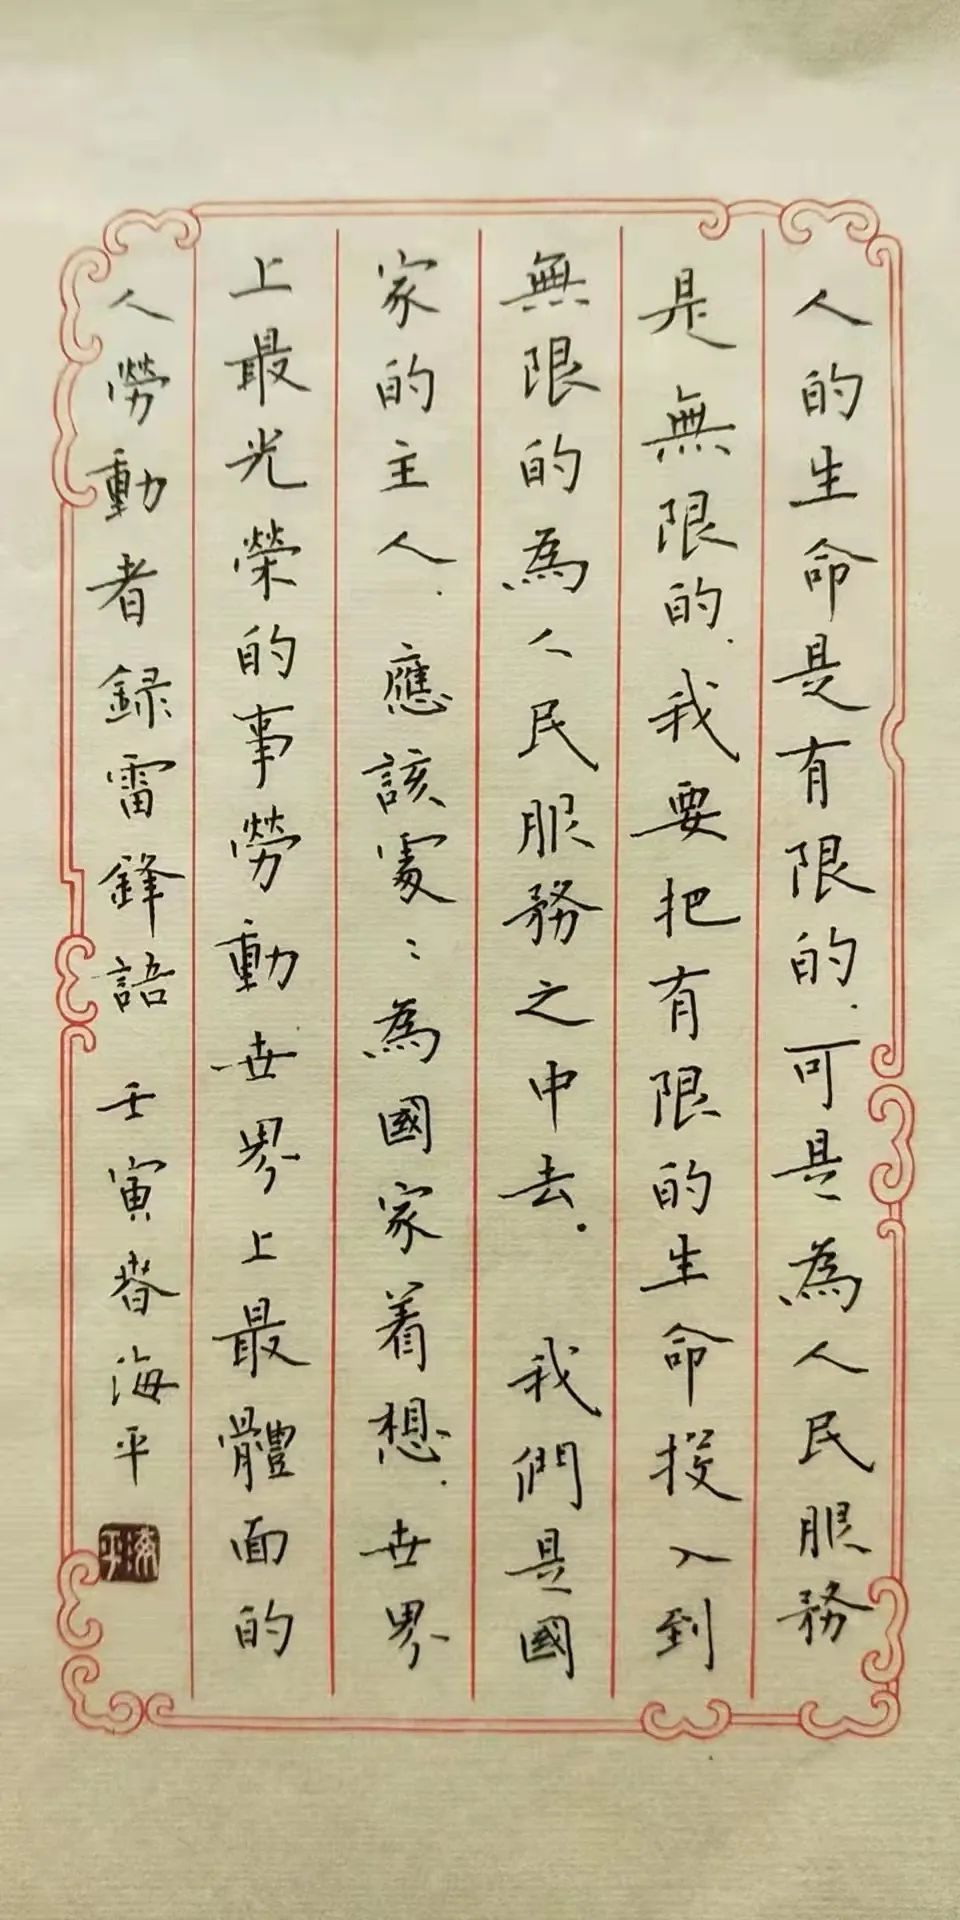 人的生命是有限的.可是為人民服務
是無限的.我要把有限的生命投入到
無限的為人民服務之中去.我們是國
家的主人.應該處:為國家着想.世界
上最光榮的事勞動世界上最體面的
人勞動者録雷鋒語 壬寅春海平